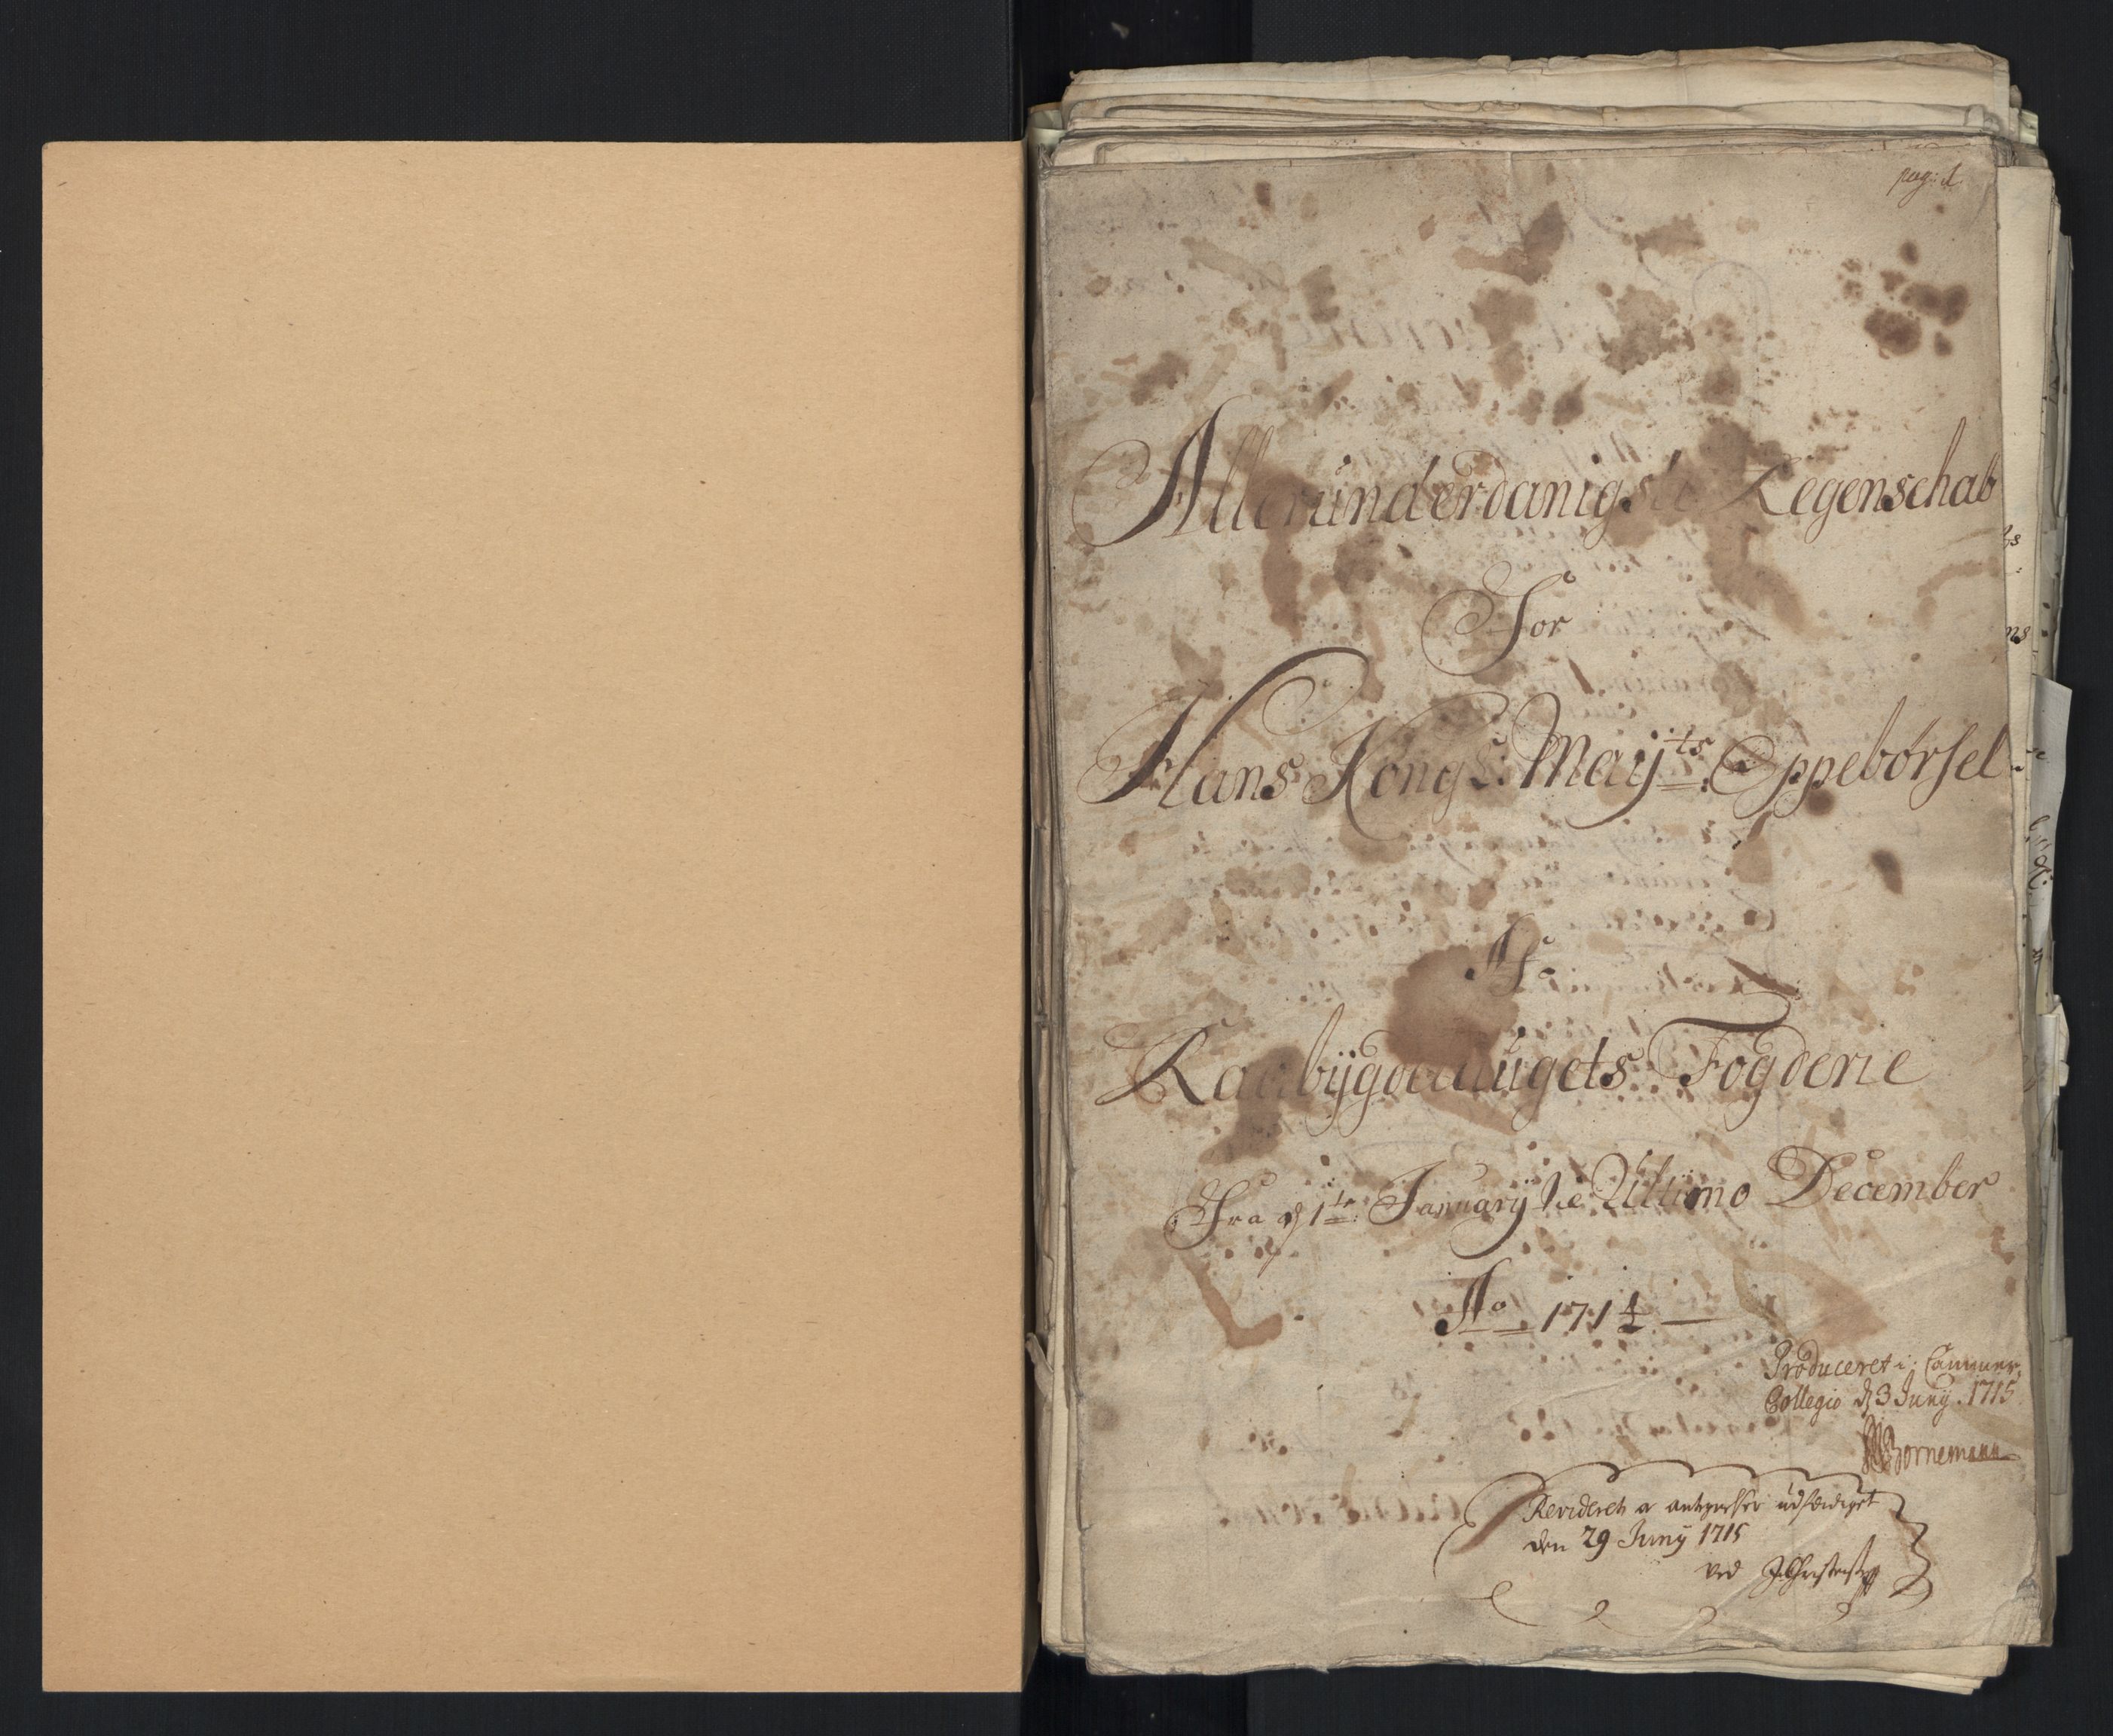 pag: 1.
Allerunderdanigste Regenschab
For
Hans Kongl: Mayts: Oppebørsel
Af
Raabÿgdelaugets Fogderie
Fra d 1te: Januarÿ til Ultimo December
Ao 1714
Produceret i Cammer
Collegio d 3 Junÿ. 1715
Bornemann
Revideret oc antegnelser udferdiget
den 29 Junÿ 1715
ved